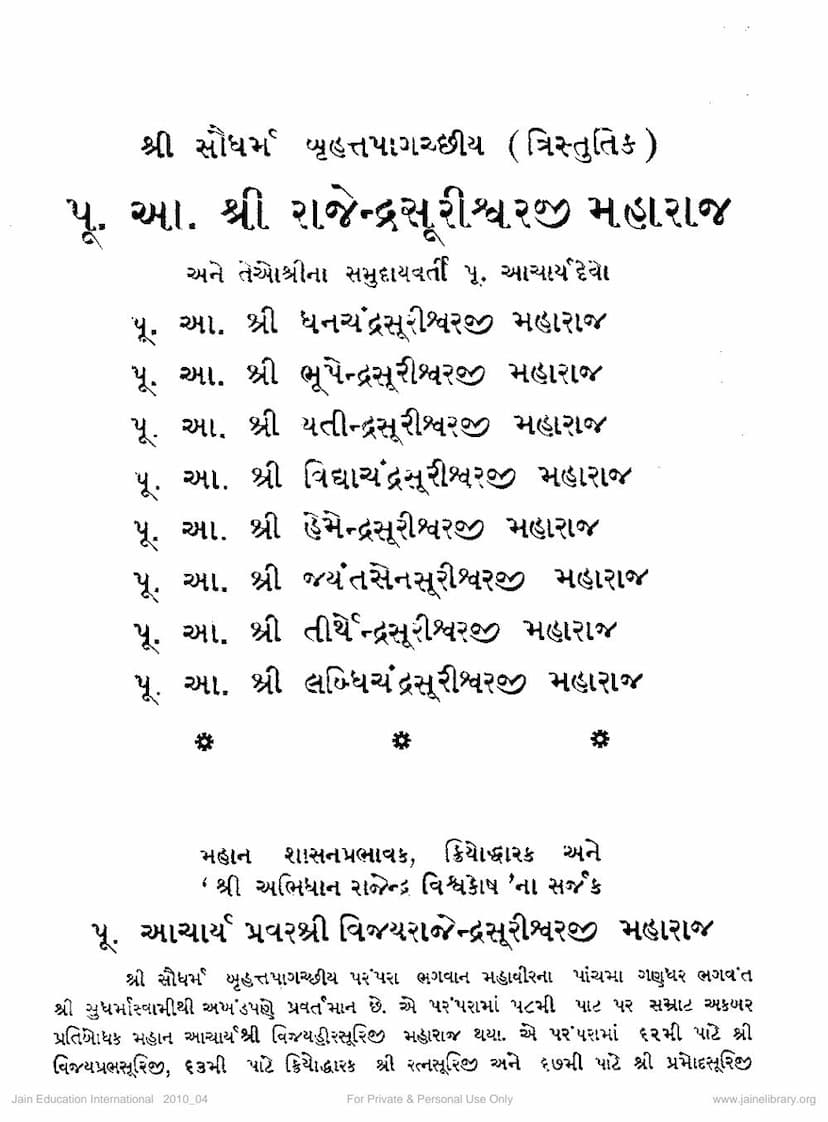 શ્રી સૌધર્મ બૃહત્તપાગચ્છીય (ત્રિસ્તુતિક)
પૂ. આ. શ્રી રાજેન્દ્રસૂરીશ્વરજી મહારાજ
અને તેઓશ્રીના સમુદાયવર્તી પૂ. આચાર્યદેવો
પૂ. આ. શ્રી ધનચંદ્રસૂરીશ્વરજી મહારાજ
પૂ. આ. શ્રી ભૂપેન્દ્રસૂરીશ્વરજી મહારાજ
પૂ. આ. શ્રી યતીન્દ્રસૂરીશ્વરજી મહારાજ
પૂ. આ. શ્રી વિદ્યાચંદ્રસૂરીશ્વરજી મહારાજ
પૂ. આ. શ્રી હેમેન્દ્રસૂરીશ્વરજી મહારાજ
પૂ. આ. શ્રી જયંતસેનસૂરીશ્વરજી મહારાજ
પૂ. આ. શ્રી તીર્થેન્દ્રસૂરીશ્વરજી મહારાજ
પૂ. આ. શ્રી લબ્ધિચંદ્રસૂરીશ્વરજી મહારાજ
મહાન શાસનપ્રભાવક, ક્રિયોદ્ધારક અને
‘શ્રી અભિધાન રાજેન્દ્ર વિશ્વકોષ’ના સર્જક
પૂ. આચાર્ય પ્રવરશ્રી વિજયરાજેન્દ્રસૂરીશ્વરજી મહારાજ
શ્રી સૌધર્મ બૃહત્તપાગચ્છીય પરંપરા ભગવાન મહાવીરના પાંચમા ગણધર ભગવંત
શ્રી સુધર્માસ્વામીથી અખંડપણે પ્રવર્તમાન છે. એ પરંપરામાં ૫૮મી પાટ પર સમ્રાટ અકબર
પ્રતિબોધક મહાન આચાર્યશ્રી વિજયહીરસૂરિજી મહારાજ થયા. એ પરંપરામાં ૬૨મી પાટે શ્રી
વિજયપ્રભસૂરિજી, ૬૩મી પાટે ક્રિયોદ્ધારક શ્રી રત્નસૂરિજી અને ૬૭મી પાટે શ્રી પ્રમોદસૂરિજી
Jain Education International 2010_04 For Private & Personal Use Only www.jainelibrary.org